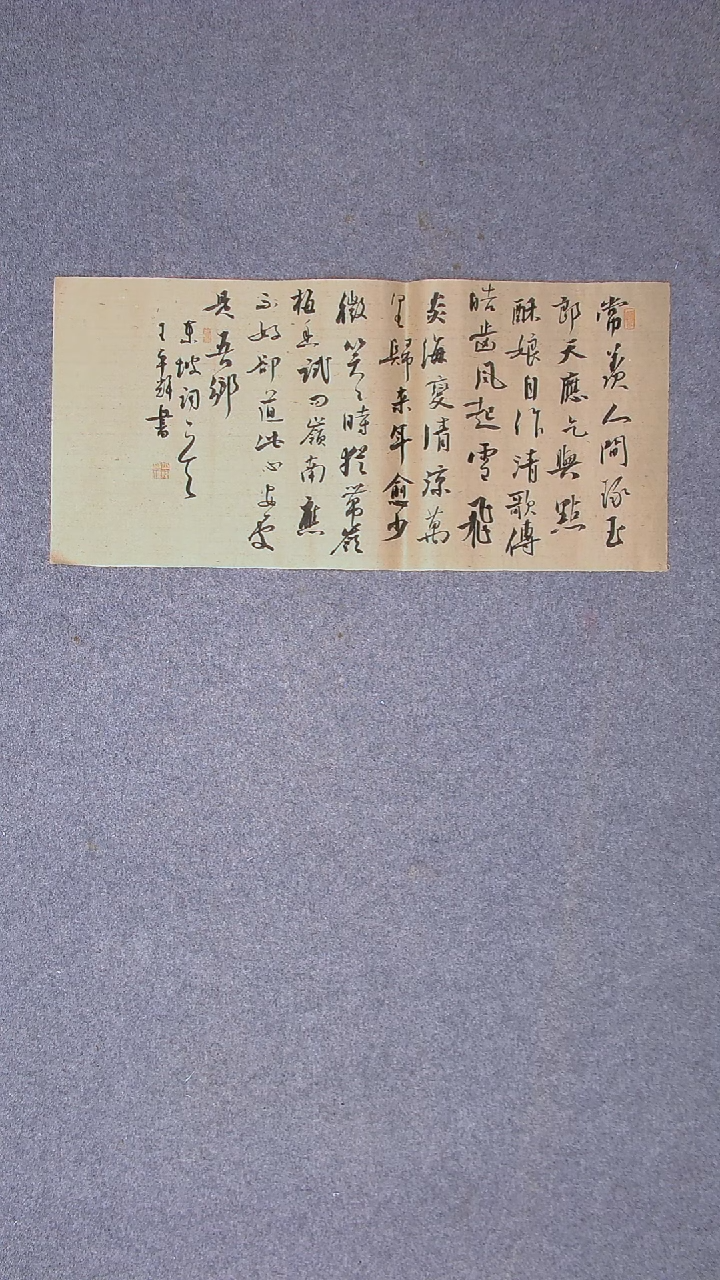 常羨人間琢玉
郎天應乞與點
酥娘自作清歌傳
皓齒風起雪飛
炎海變清涼萬
里歸來年愈少
微笑笑時猶帶嶺
梅香試問嶺南應
不好卻道此心安處
是吾鄉
東坡詞
王 書